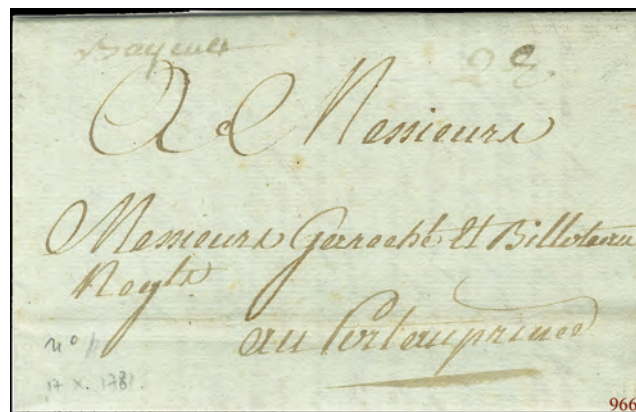 Bayeux
A Messieurs
Messieurs Garesché et Billoteau
Nogts
au Portauprince
n°
17 X. 178
966